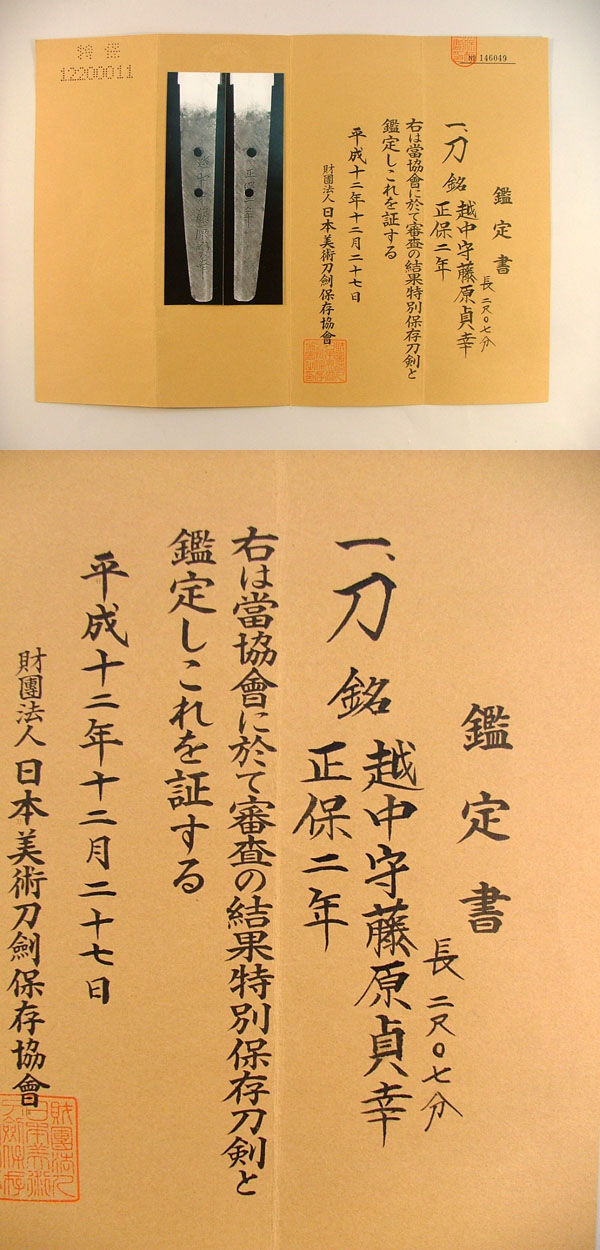 特保
12200011
No 146049
鑑定書
一、刀 銘 越中守藤原貞幸
正保二年
長二尺〇七分
右は當協會に於て審査の結果特別保存刀剣と
鑑定しこれを証する
平成十二年十二月二十七日
財團法人日本美術刀劍保存協會
鑑定書
一、刀 銘 越中守藤原貞幸
正保二年
長二尺〇七分
右は當協會に於て審査の結果特別保存刀剣と
鑑定しこれを証する
平成十二年十二月二十七日
財團法人日本美術刀劍保存協會